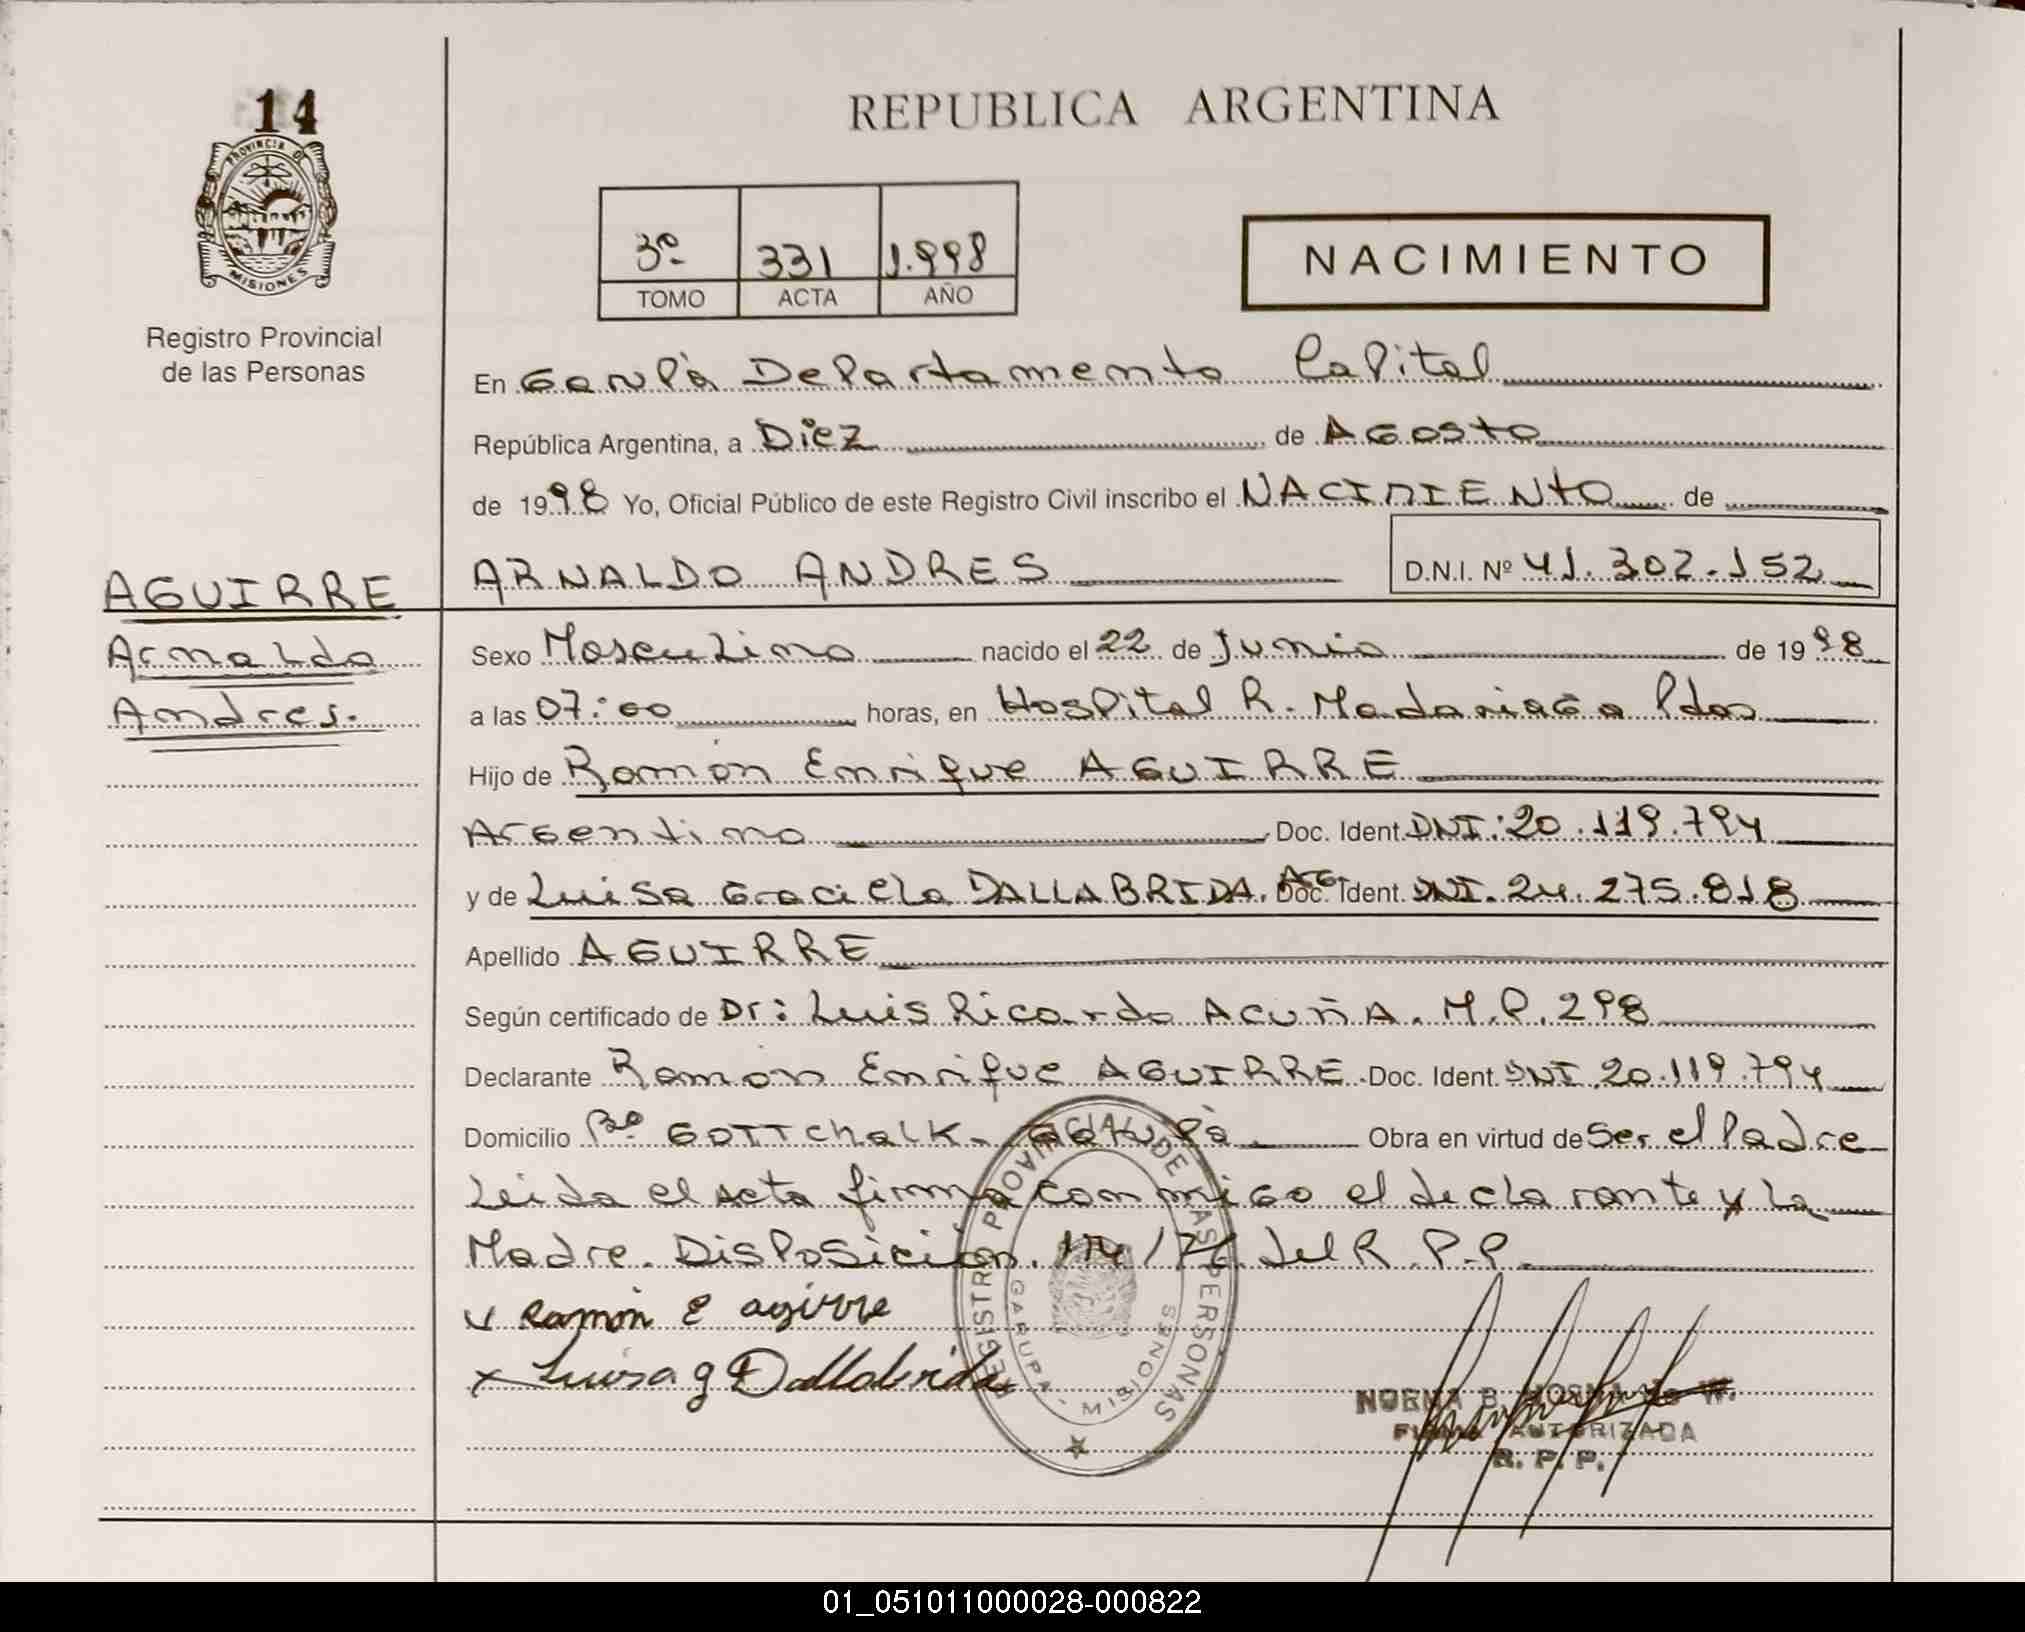 14
PROVINCIA DE
MISIONES
Registro Provincial
de las Personas
REPUBLICA ARGENTINA
3º 331 1.998
TOMO ACTA AÑO
NACIMIENTO
En Garupà Departamento Capital
República Argentina, a Diez de Agosto
de 1998 Yo, Oficial Público de este Registro Civil inscribo el NACIMIENTO de
ARNALDO ANDRES D.N.I. Nº 41.302.152
AGUIRRE
Arnaldo
Andres.
Sexo Masculino nacido el 22 de Junio de 1998
a las 07:00 horas, en Hospital R. Madariaga Pdas
Hijo de Ramón Enrique AGUIRRE
Argentino Doc. Ident. DNI: 20.119.794
y de Luisa Graciela DALLABRIDA. AG. Doc. Ident. DNI. 24.275.818
Apellido AGUIRRE
Según certificado de Dr: Luis Ricardo ACUÑA. M.P. 298
Declarante Ramón Enrique AGUIRRE Doc. Ident. DNI. 20.119.794
Domicilio Bº GOTTChalK. Garupà Obra en virtud de Ser el Padre
Leida el acta firma conmigo el declarante y La
Madre. Disposición. 114/76 del R.P.P.
Ramón E agirre
x Luisa g Dallabrida
REGISTRO PROVINCIAL DE LAS PERSONAS
GARUPA - MISIONES
NORMA B.
FIRMA AUTORIZADA
R. P. P.
01_051011000028-000822